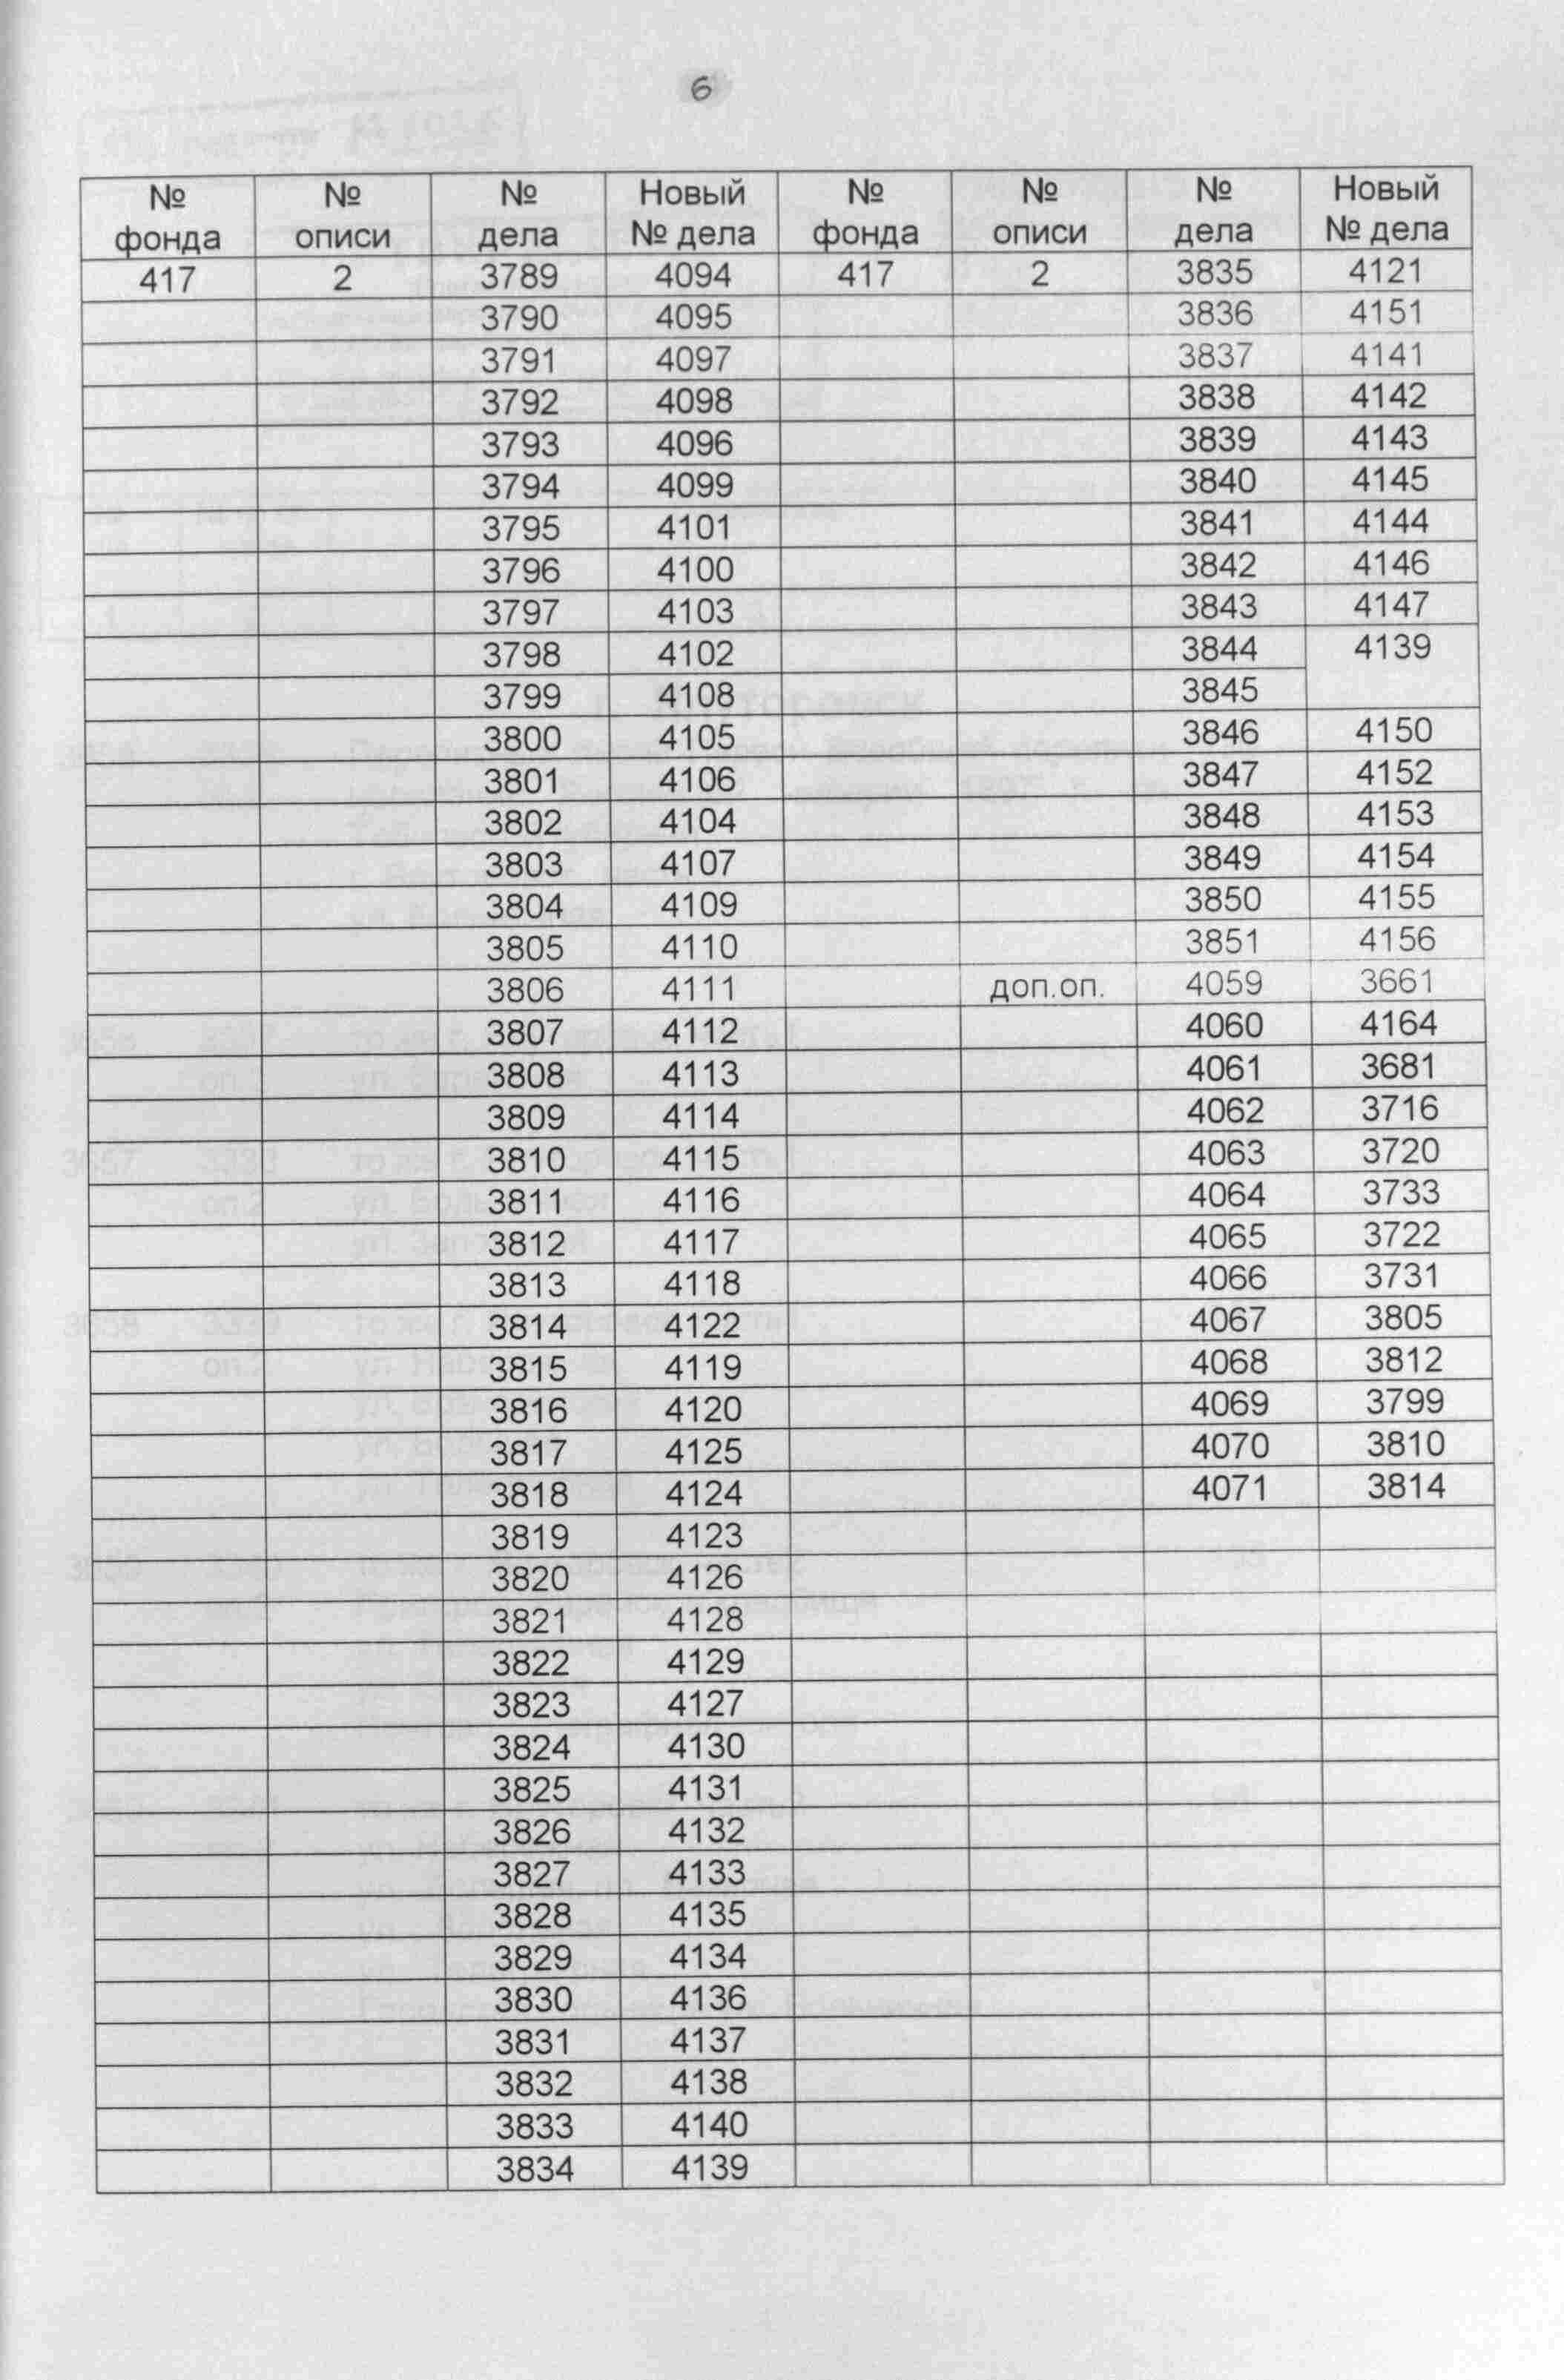 6
№ фонда № описи № дела Новый № дела № фонда № описи № дела Новый № дела
417 2 3789 4094 417 2 3835 4121
3790 4095 3836 4151
3791 4097 3837 4141
3792 4098 3838 4142
3793 4096 3839 4143
3794 4099 3840 4145
3795 4101 3841 4144
3796 4100 3842 4146
3797 4103 3843 4147
3798 4102 3844 4139
3799 4108 3845
3800 4105 3846 4150
3801 4106 3847 4152
3802 4104 3848 4153
3803 4107 3849 4154
3804 4109 3850 4155
3805 4110 3851 4156
3806 4111 доп.оп. 4059 3661
3807 4112 4060 4164
3808 4113 4061 3681
3809 4114 4062 3716
3810 4115 4063 3720
3811 4116 4064 3733
3812 4117 4065 3722
3813 4118 4066 3731
3814 4122 4067 3805
3815 4119 4068 3812
3816 4120 4069 3799
3817 4125 4070 3810
3818 4124 4071 3814
3819 4123
3820 4126
3821 4128
3822 4129
3823 4127
3824 4130
3825 4131
3826 4132
3827 4133
3828 4135
3829 4134
3830 4136
3831 4137
3832 4138
3833 4140
3834 4139